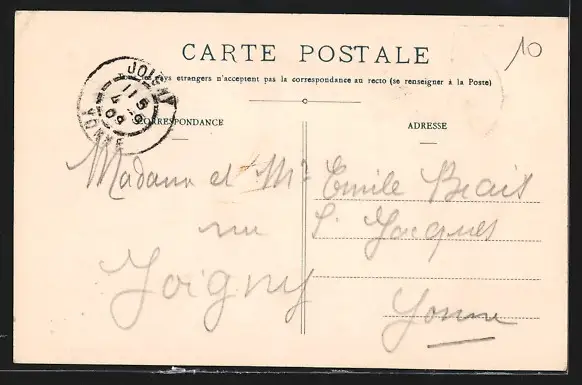 CARTE POSTALE
10
Tous les pays etrangers n'acceptent pas la correspondance au recto (se renseigner à la Poste)
JOIGNY
11 5
4 -9
09
YONNE
CORRESPONDANCE
ADRESSE
Madame et Mr Emile
rue S. Jacques
Joigny
Yonne